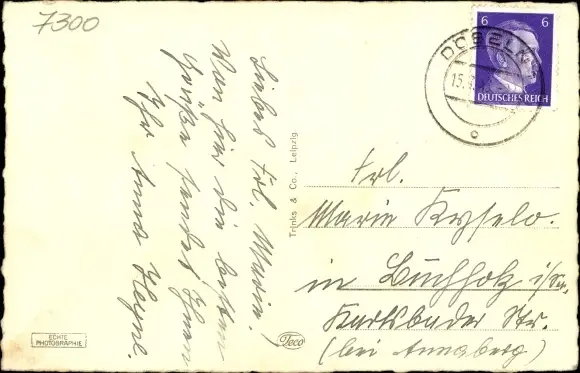 7300
Liebes Frl. Marie.
Von hier die besten
Grüße sendet Ihnen
Ihr Anna
Trinks & Co., Leipzig
6 6
DEUTSCHES REICH
DÖBELN
15.
Frl.
Marie Kyselo.
in Buchholz i/Sa.
Karlsbader Str.
(bei Annaberg)
ECHTE
PHOTOGRAPHIE
Teco